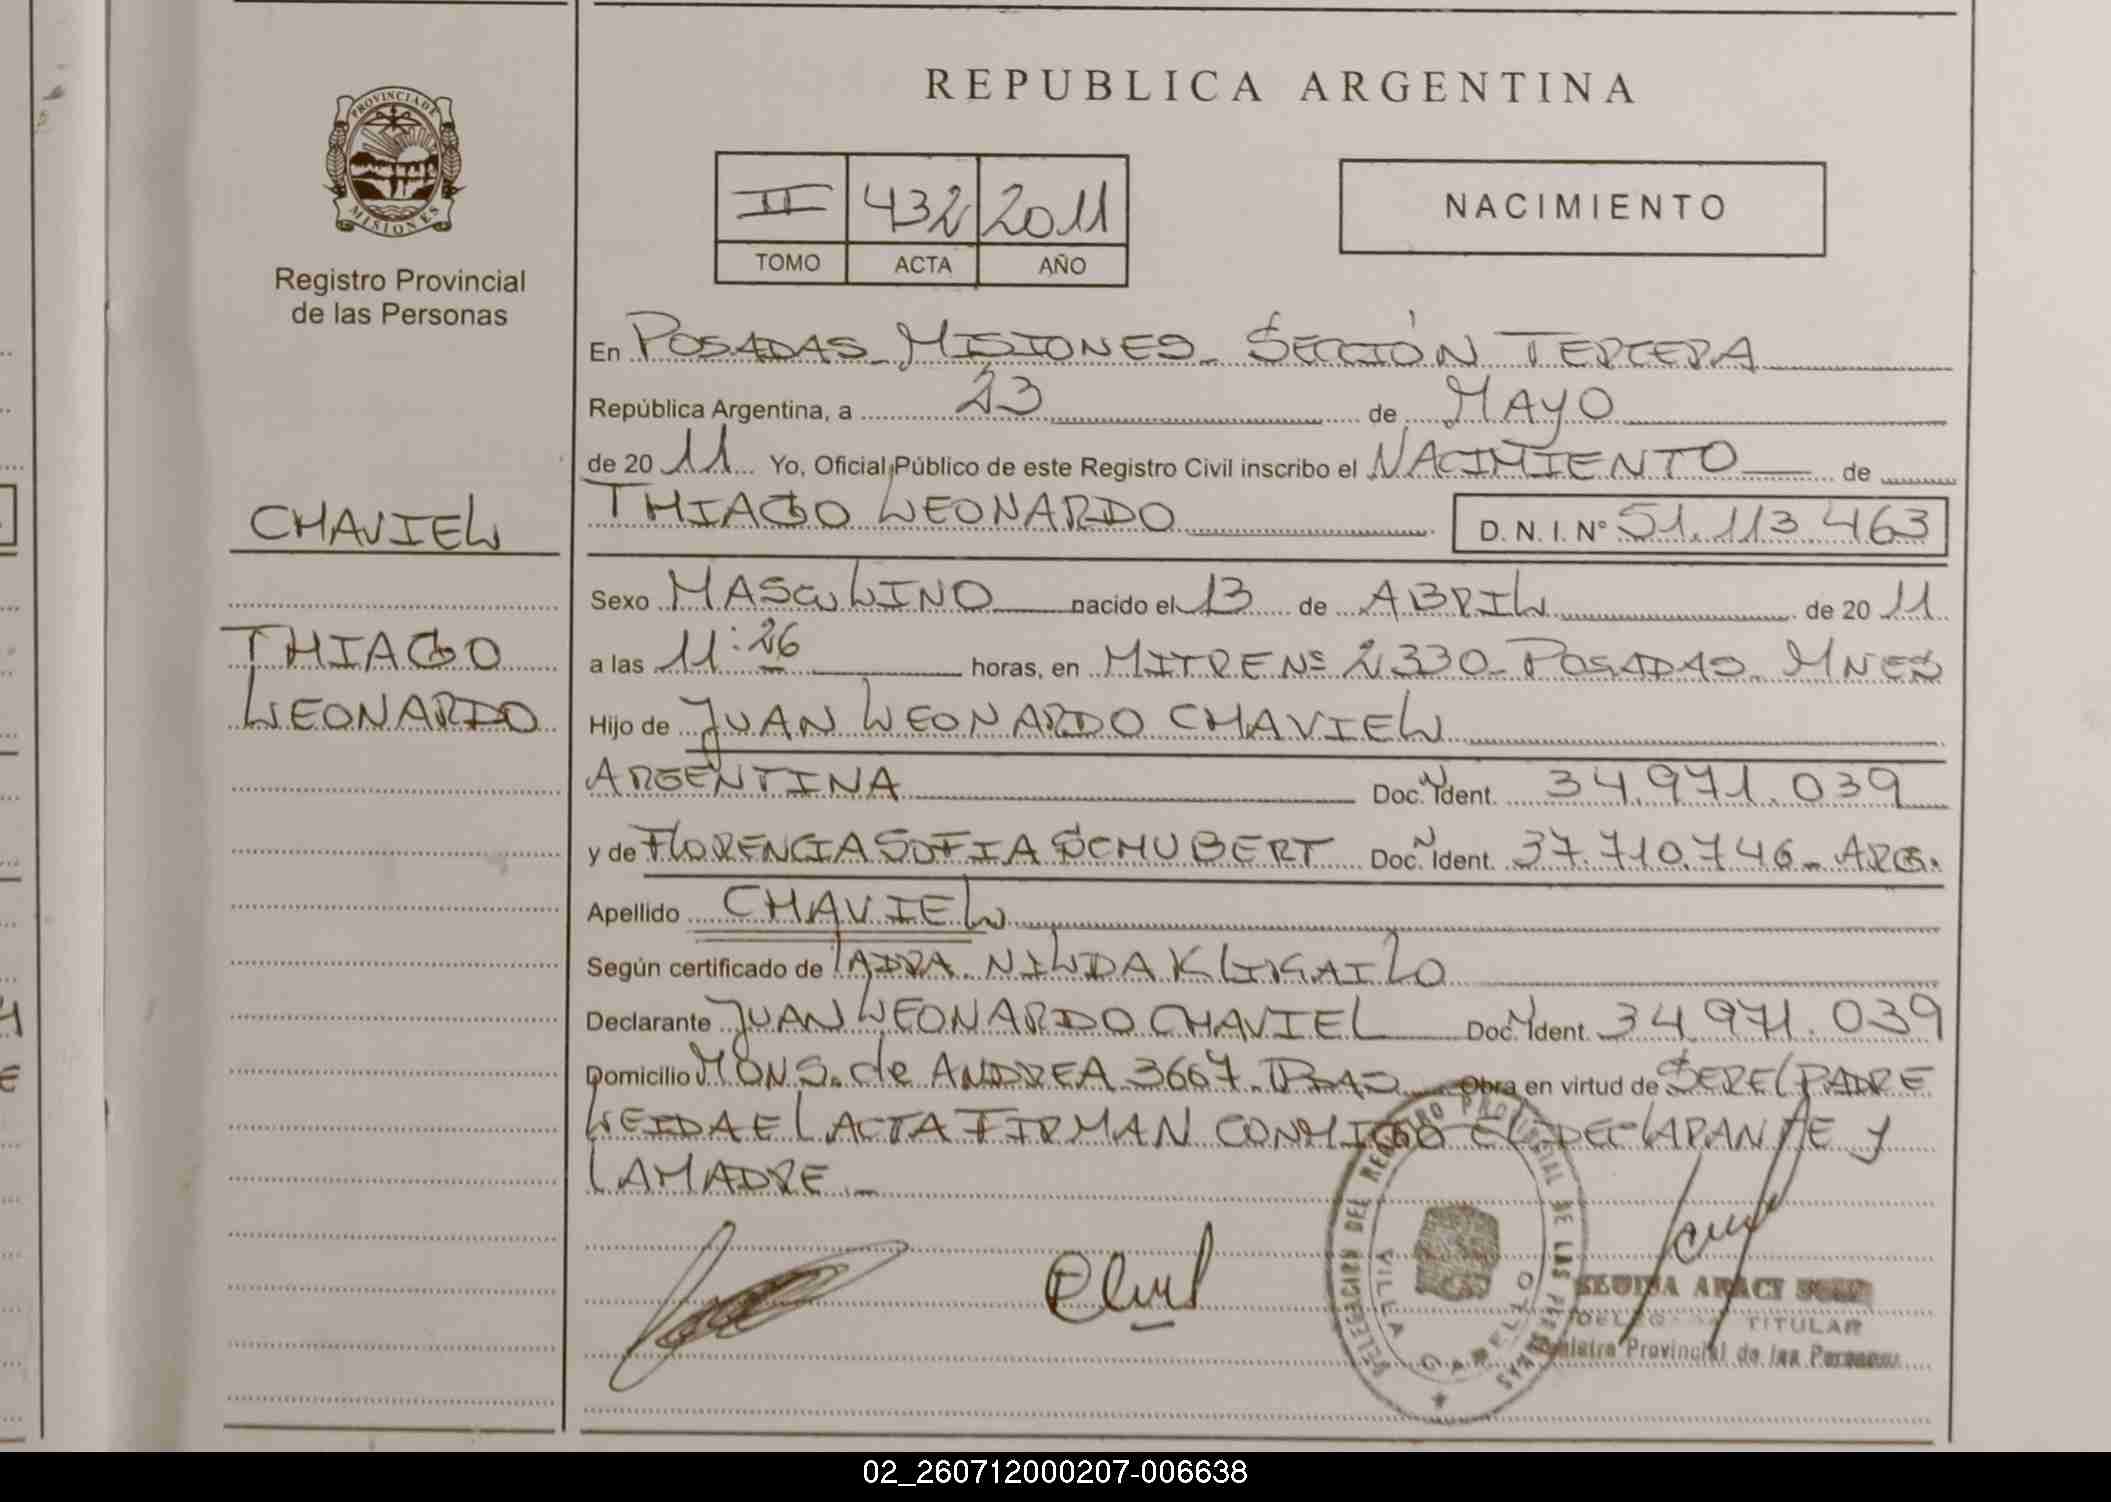 REPUBLICA ARGENTINA
PROVINCIA DE
MISIONES
Registro Provincial
de las Personas
II 432 2011
TOMO ACTA AÑO
NACIMIENTO
En POSADAS - MISIONES - SECCIÓN TERCERA
República Argentina, a 23 de MAYO
de 2011 Yo, Oficial Público de este Registro Civil inscribo el NACIMIENTO de
THIAGO LEONARDO D. N. I. Nº 51.113.463
CHAVIEL
THIAGO
LEONARDO
Sexo MASCULINO nacido el 13 de ABRIL de 2011
a las 11:26 horas, en MITRE Nº 2330 - POSADAS - MNES
Hijo de JUAN LEONARDO CHAVIEL
ARGENTINA Doc. N Ident. 34.971.039
y de FLORENCIA SOFIA SCHUBERT Doc. N Ident. 37.710.746 - ARG.
Apellido CHAVIEL
Según certificado de NILDA
Declarante JUAN LEONARDO CHAVIEL Doc. N Ident. 34.971.039
Domicilio MONS. de ANDREA 3667 - Obra en virtud de SER EL PADRE
LEIDA EL ACTA FIRMAN CONMIGO EL DECLARANTE Y
LA MADRE -
DELEGACION DEL REGISTRO PROVINCIAL DE LAS PERSONAS
VILLA CABELLO
ARACI
TITULAR
Registro Provincial de las Personas
02_260712000207-006638